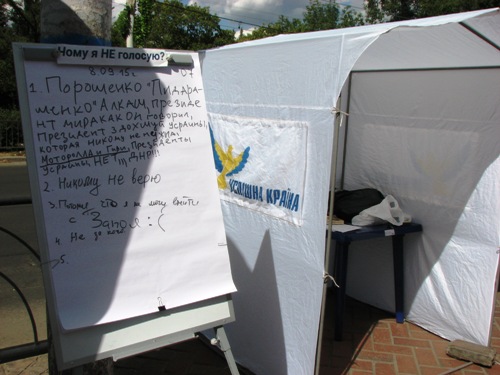 Чому я НЕ голосую?
8.09.15г.
1. Порошенко "Пидара-
шенко" Алкаш, президе
нт мира как он говорил,
Президент здохшуй Украины,
которая никому не нужна
Моторолла и Гиви, Президенты
Украины, НЕ ДНР!!!
2. Никому не верю
3. что я не могу выйти
с Запоя :(
4. Не до
5.
УСПІШНА КРАЇНА